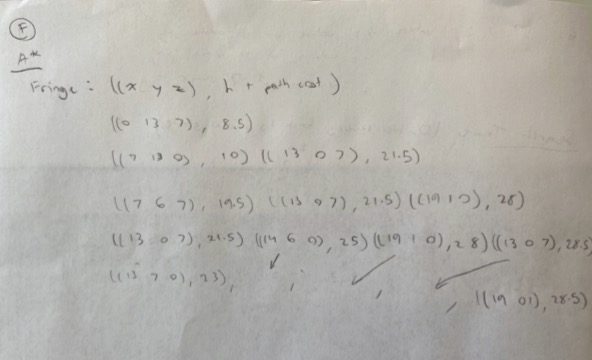 F
A*
Fringe: ((x y z), h + path cost)
((0 13 7), 8.5)
((7 13 0), 10) ((13 0 7), 21.5)
((7 6 7), 19.5) ((13 0 7), 21.5) ((19 1 0), 28)
((13 0 7), 21.5) ((14 6 0), 25) ((19 1 0), 28) ((13 0 7), 28.5
((13 7 0), 23), , , ,
((19 0 1), 28.5)